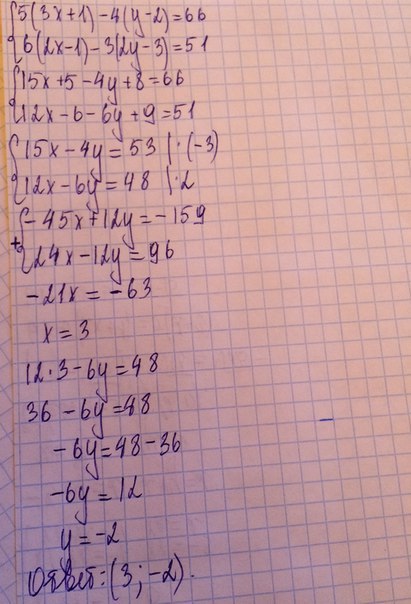 {5(3x+1)-4(y-2)=66
{6(2x-1)-3(2y-3)=51
{15x+5-4y+8=66
{12x-6-6y+9=51
{15x-4y=53 |·(-3)
{12x-6y=48 |·2
{-45x+12y=-159
+{24x-12y=96
-21x=-63
x=3
12·3-6y=48
36-6y=48
-6y=48-36
-6y=12
y=-2
Ответ:(3;-2).